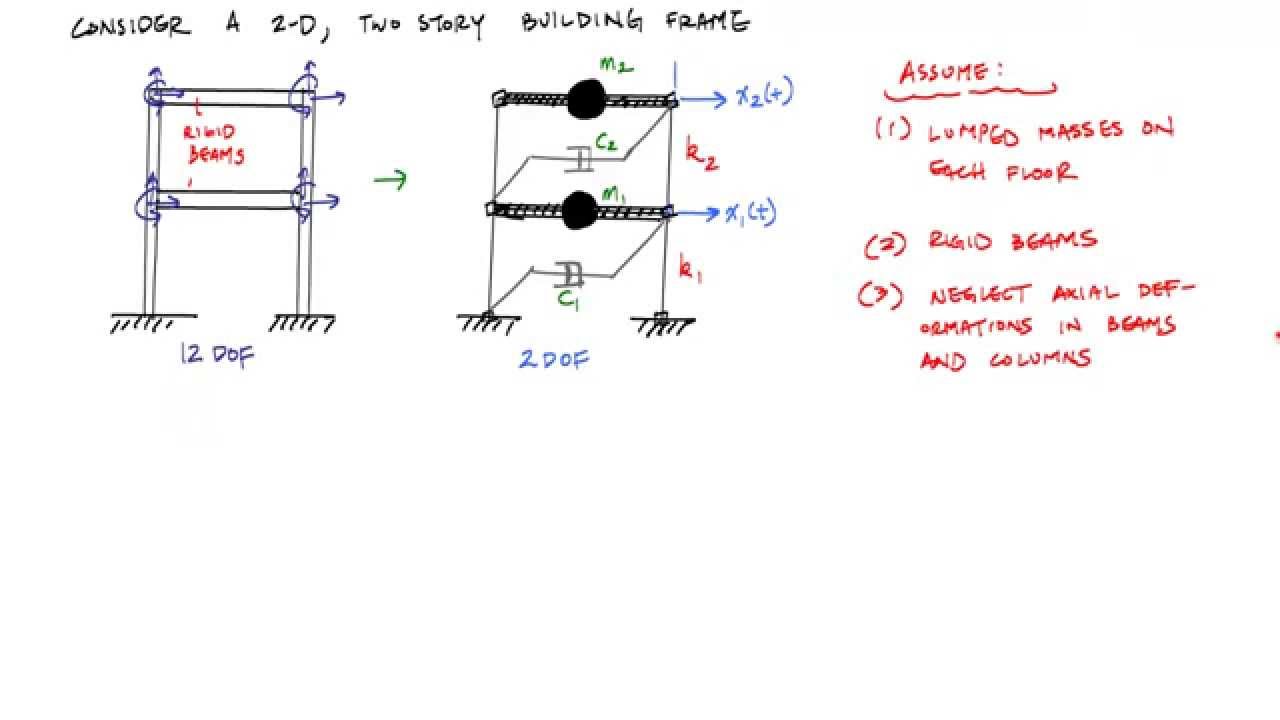 CONSIDER A 2-D, TWO STORY BUILDING FRAME
RIGID
BEAMS
12 DOF
m2
x2(t)
C2
k2
m1
x1(t)
k1
C1
2 DOF
ASSUME:
(1) LUMPED MASSES ON
EACH FLOOR
(2) RIGID BEAMS
(3) NEGLECT AXIAL DEF-
ORMATIONS IN BEAMS
AND COLUMNS